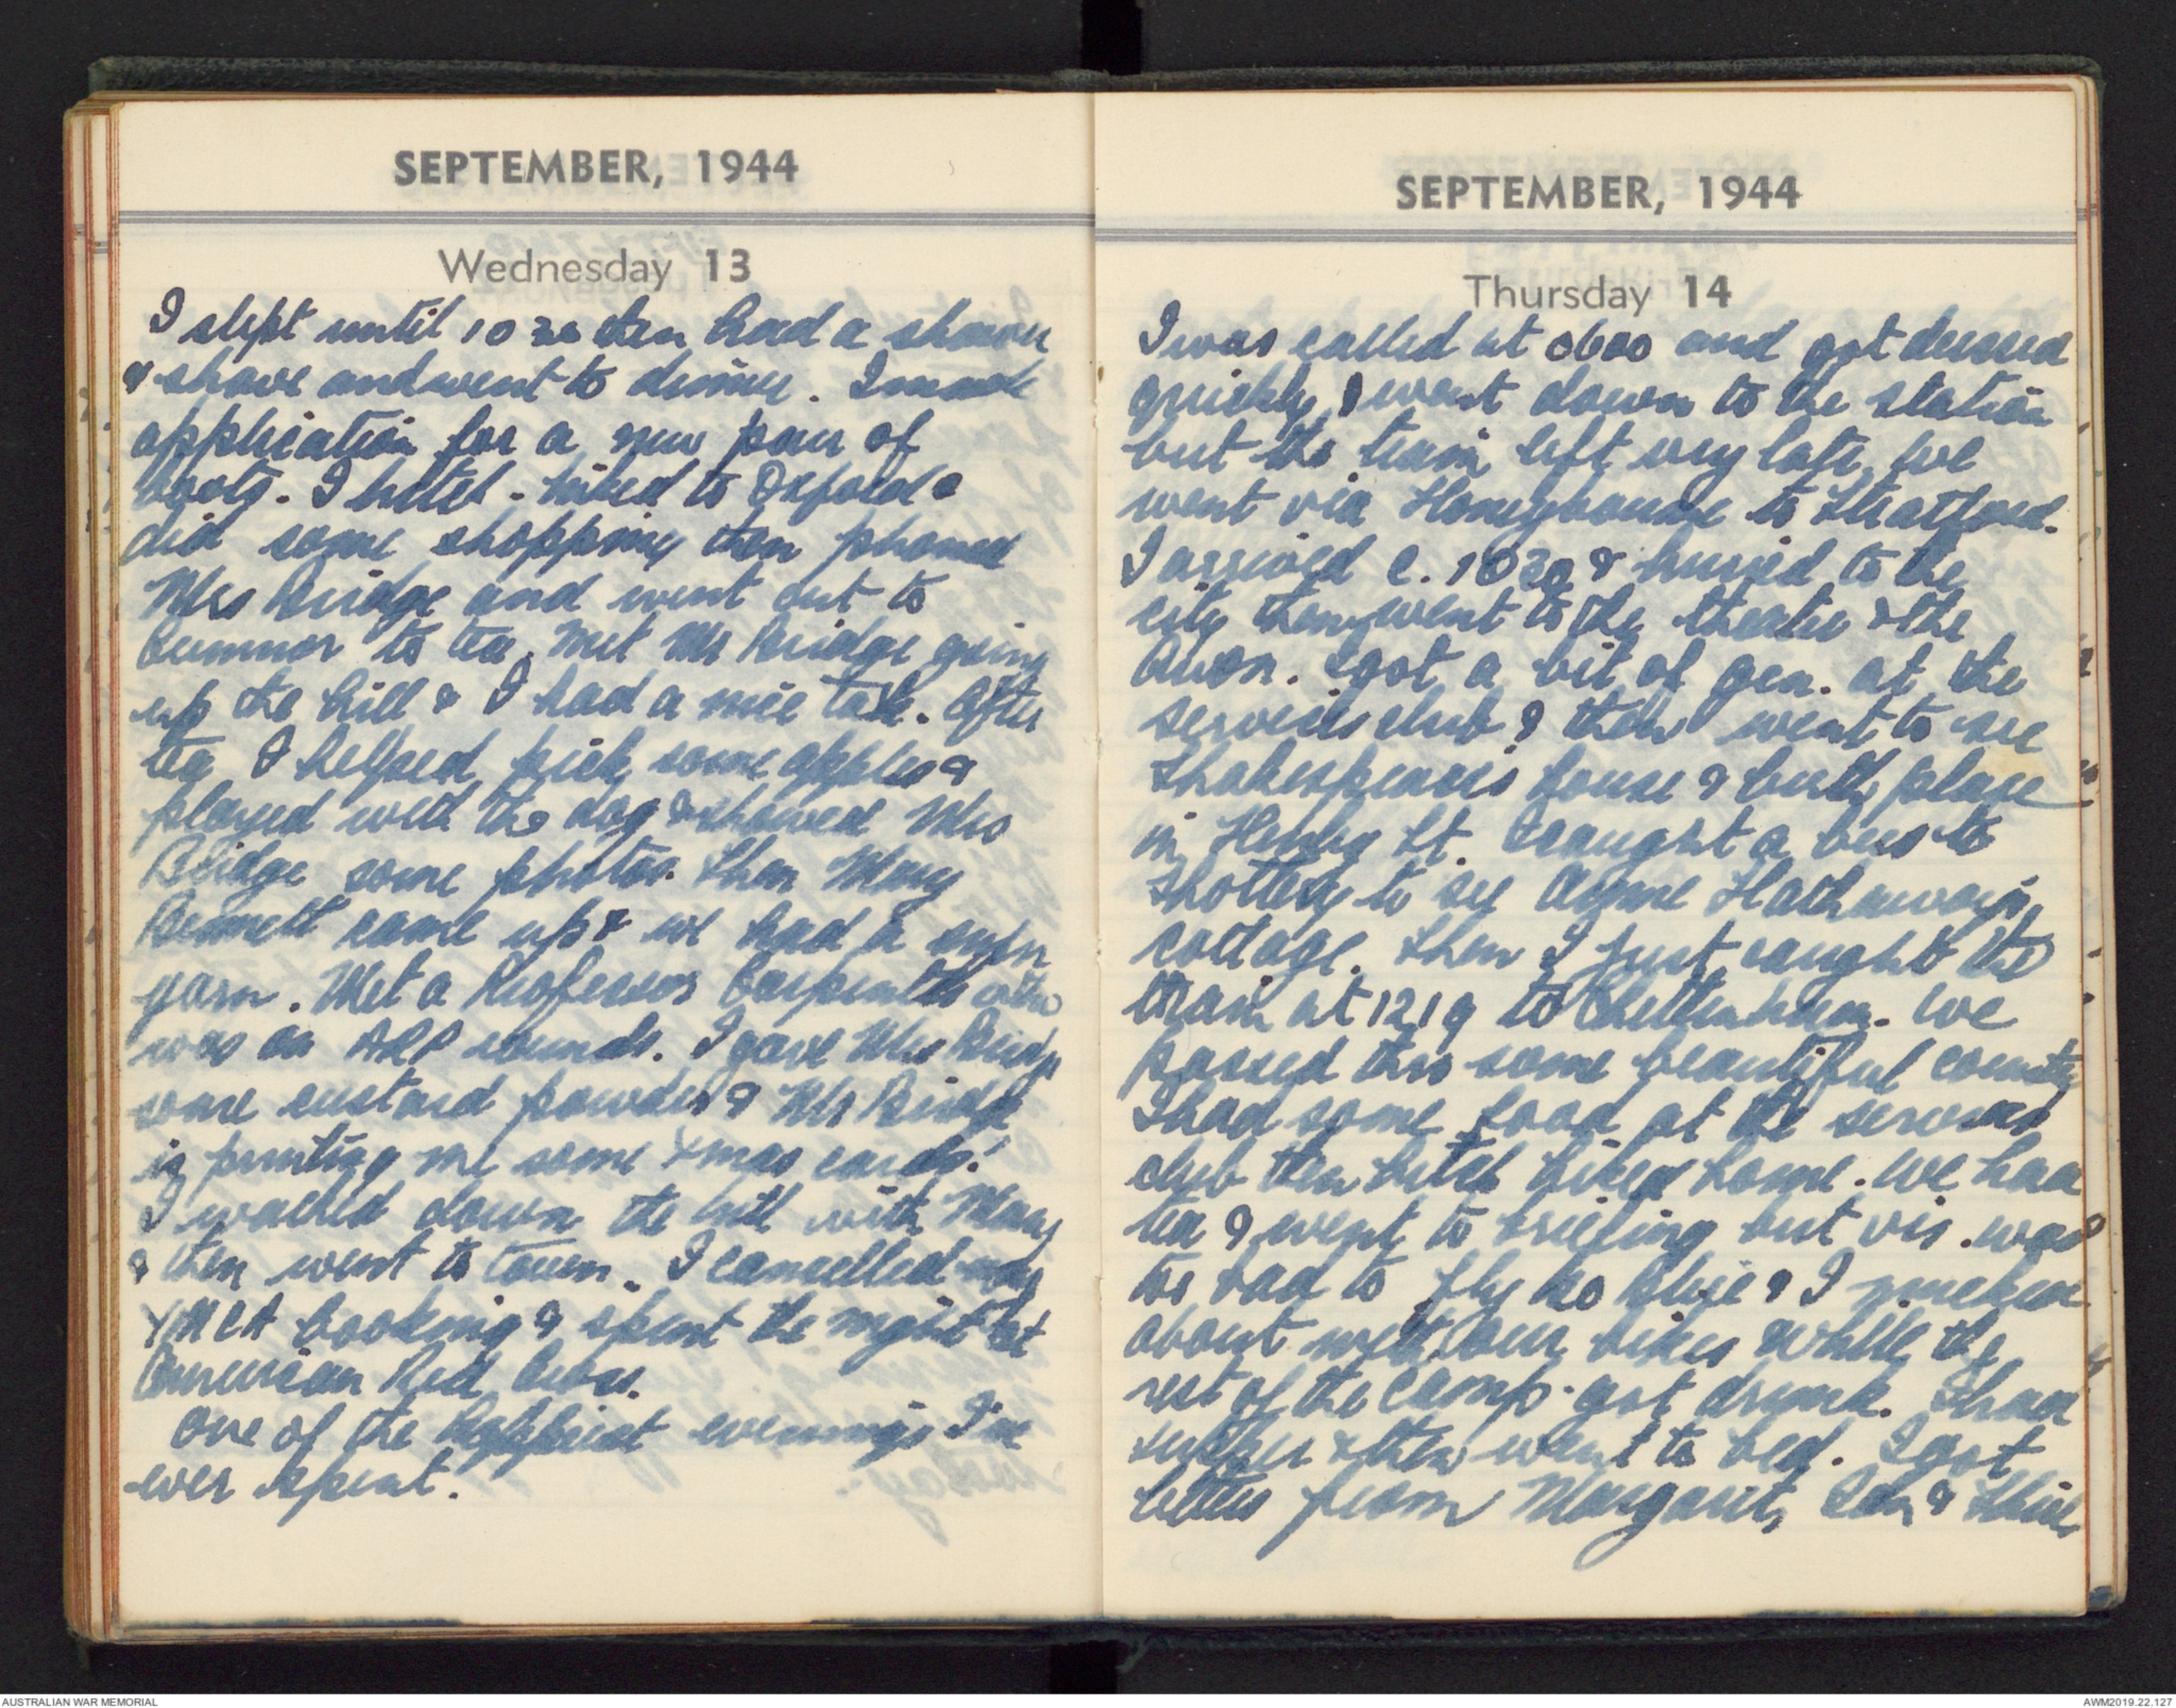 SEPTEMBER, 1944
Wednesday 13
I slept until 1030 then had a shower
& shave and went to dinner. I made
application for a new pair of
boots. I hitch-hiked to Oxford &
did some shopping then phoned
Mrs Bridge and went out to
Cumnor to tea. Met Mr Bridge going
up the hill & I had a nice talk. After
tea I helped pick some apples &
played with the dog & showed Mrs
Bridge some photos. Then Mary
Bennett came up & we had a
yarn. Met a Professor who
was on ARP rounds. I gave Mrs Bridge
some custard powder & Mr Bridge
is printing me some Xmas cards.
I walked down the hill with Mary
& then went to town. I cancelled my
YMCA booking & spent the night at
American Red Cross.
One of the happiest evenings I've
ever spent.
SEPTEMBER, 1944
Thursday 14
I was called at 0600 and got dressed
quickly, I went down to the station
but the train left very late. We
went via Honeybourne to Stratford.
I arrived c. 1030 & hurried to the
city then went to the theatre & the
Avon. Got a bit of gen. at the
services club & then went to see
Shakespeare's house & birth place
in Henley St. Caught a bus to
Shottery to see Anne Hathaway's
cottage. Then I just caught the
train at 1219 to Cheltenham. We
passed thro some beautiful country
I had some food at the services
club then hitch hiked home. We had
tea & went to briefing but vis. was
too bad to fly so & I mucked
about with our bikes while the
rest of the camp got drunk. I had
supper & then went to bed. I got
letters from Margaret, Ian &
AUSTRALIAN WAR MEMORIAL
AWM2019.22.127